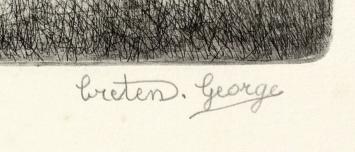 Creten. George